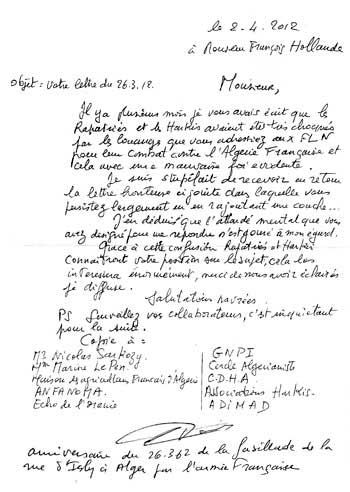 le 2-4.2012
à Monsieur François Hollande
Objet: Votre lettre du 26.3.12.
Monsieur,
Il y a plusieurs mois je vous avais écrit que les
Rapatriés et les Harkis avaient été très choqués
par les louanges que vous adressiez aux FLN
pour leur combat contre l'Algérie Française et
cela avec une mauvaise foi évidente
Je suis stupéfait de recevoir en retour
la lettre honteuse ci jointe dans laquelle vous
persistez largement en en rajoutant une couche...
J'en déduis que l'attardé mental que vous
avez désigné pour me répondre n'est gouré à mon égard.
Grâce à cette confusion Rapatriés et Harkis
connaîtront votre position sur le sujet, cela les
intéressera énormément, merci de nous avoir éclairés
je diffuse.
Salutations navrées.
PS Surveillez vos collaborateurs, c'est inquiétant
pour la suite.
Copie à :
Mr Nicolas Sarkozy
Mme Marine Le Pen
Maison Agriculteurs Français d'Algérie
ANFANOMA.
Echo de l'Oranie
GNPI
Cercle Algérianiste
C.D.H.A.
Associations Harkis.
ADIMAD
anniversaire du 26.3.62 de la fusillade de la
rue d'Isly à Alger par l'armée Française